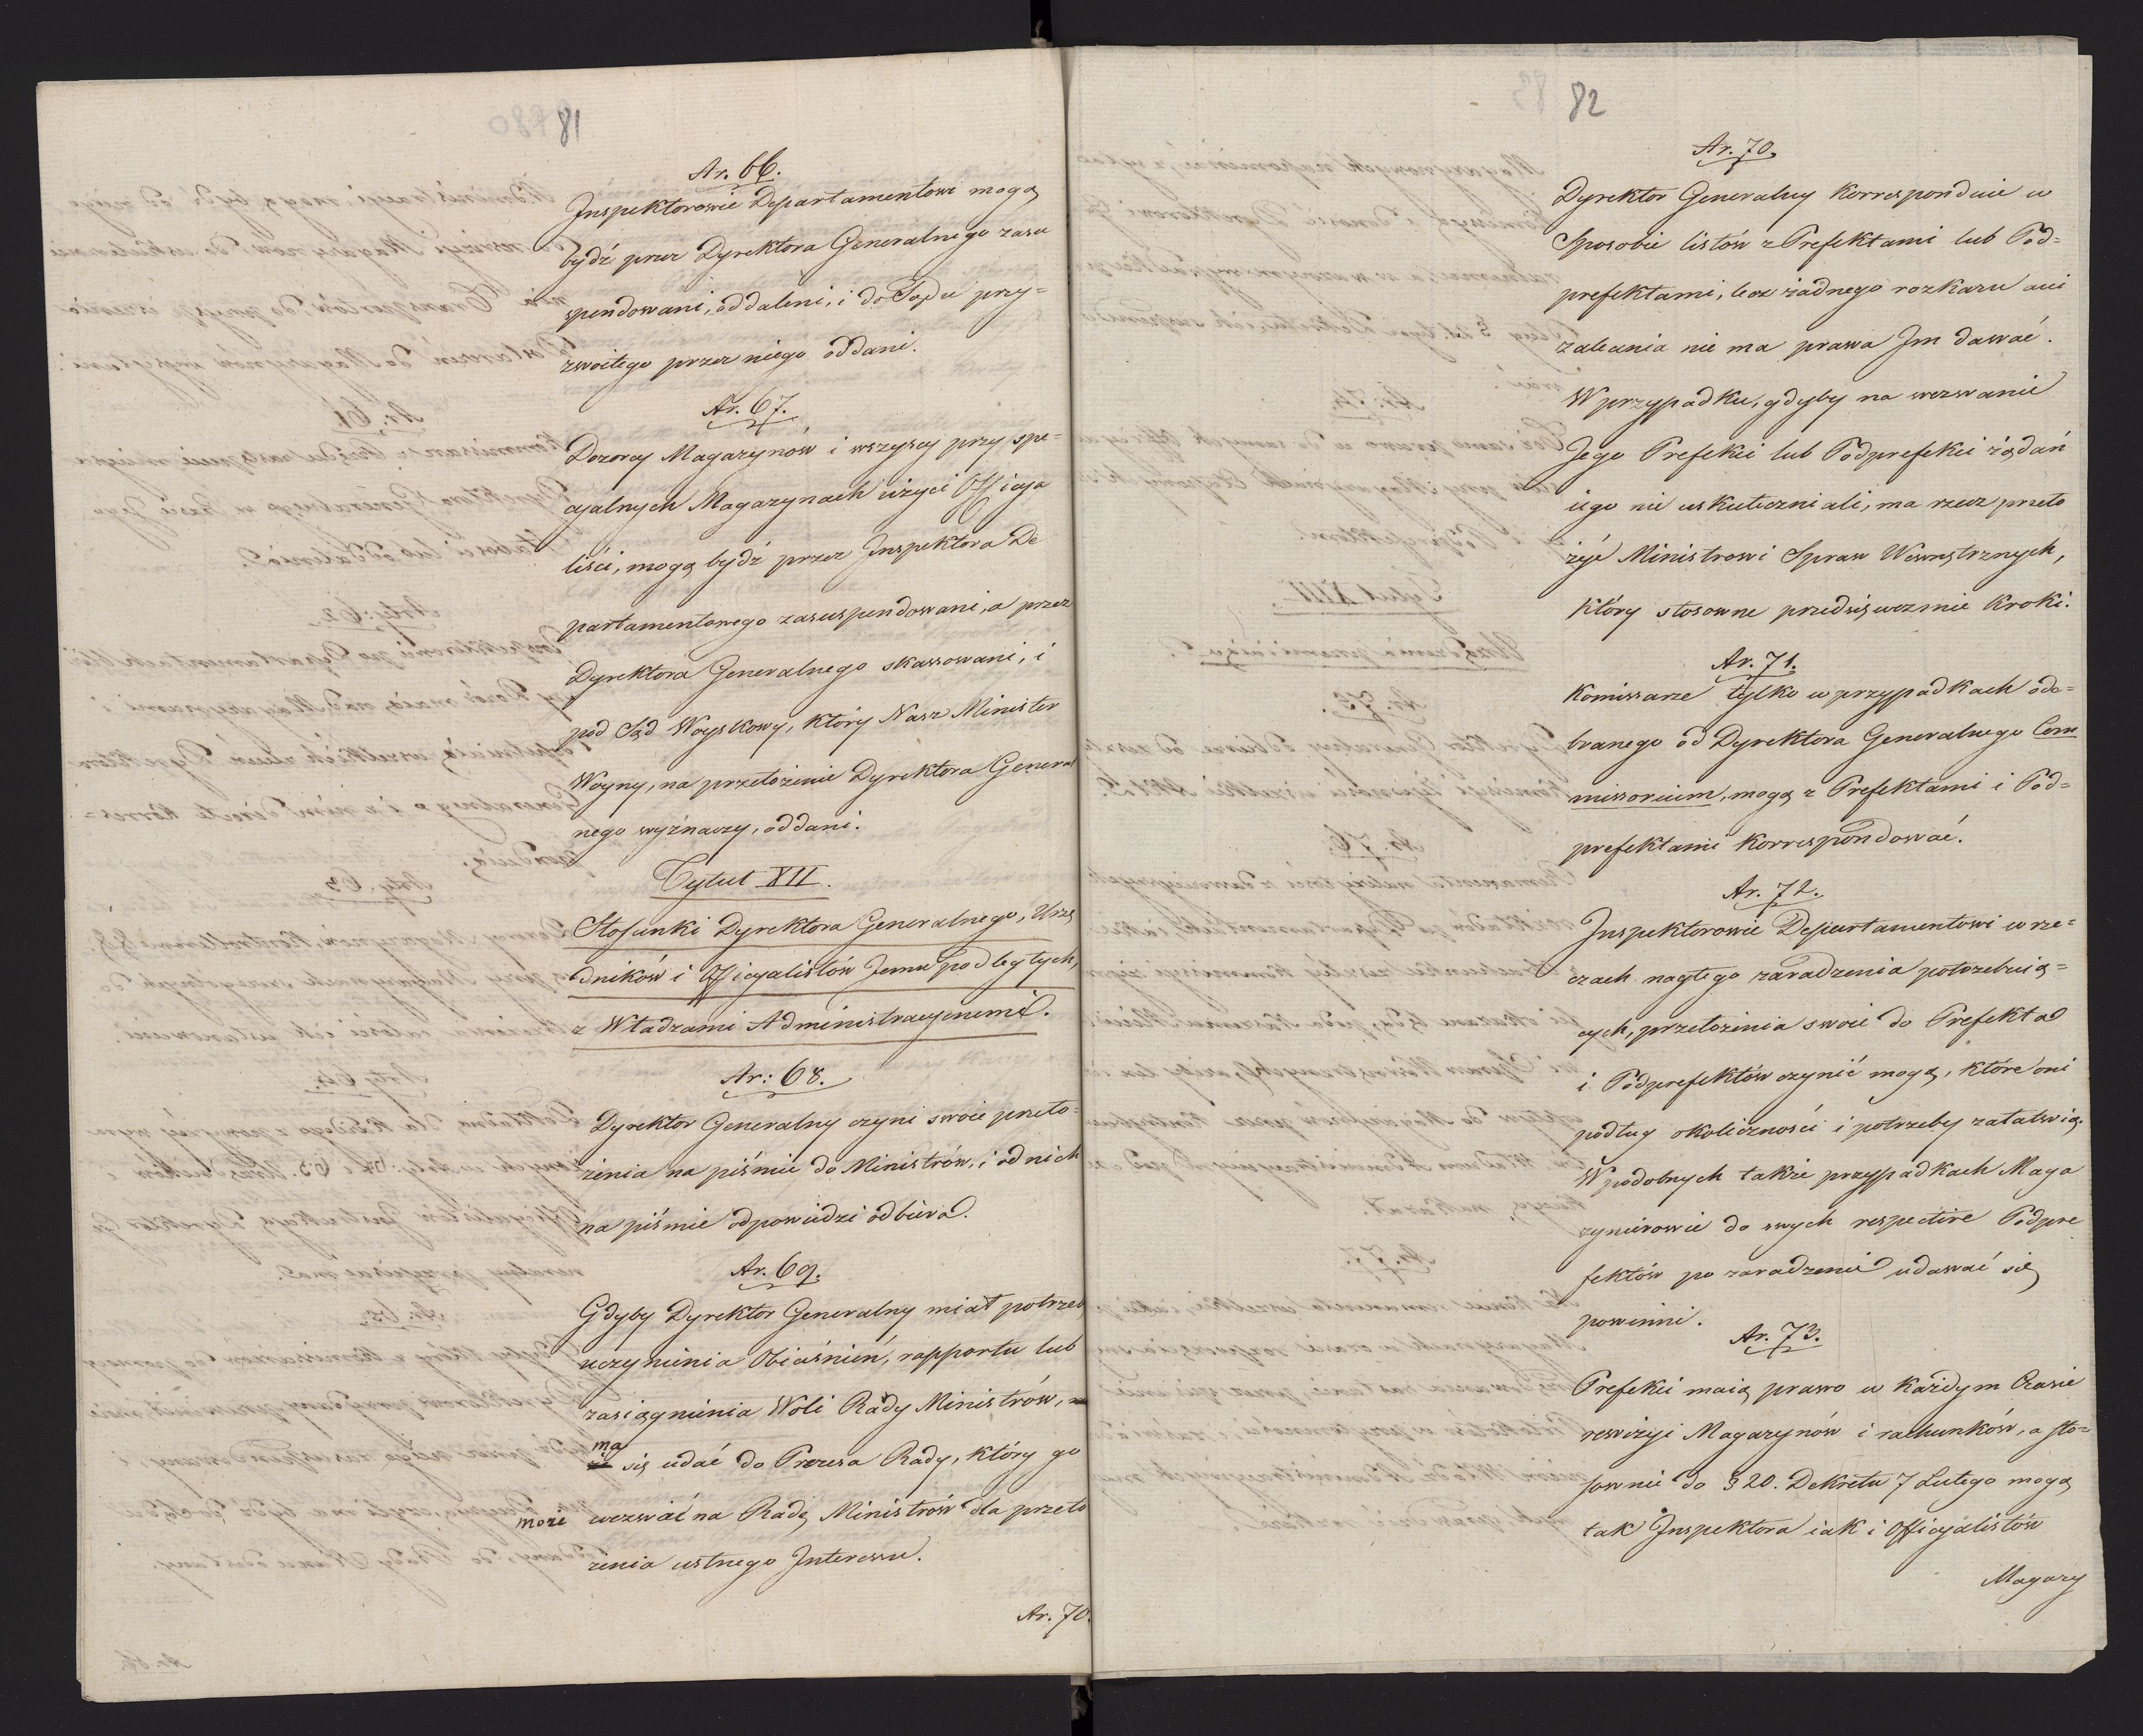 81
Ar. 66.
Inspektorowie Departamentowi mogą
bydź przez Dyrektora Generalnego zasu
spendowani, oddaleni, i do Sądu przy=
zwoitego przez niego oddani.
Ar. 67.
Dozorcy Magazynów i wszyscy przy spe=
cyalnych Magazynach użyci Officya
liści, mogą bydź przez Inspektora De
partamentowego zasuspendowani, a przez
Dyrektora Generalnego skassowani, i
pod Sąd Woyskowy, który Nasz Minister
Woyny, na przełożenie Dyrektora General
nego wyznaczy, oddani.
Tytuł XII.
Stosunki Dyrektora Generalnego, Urzę
dników i Officyalistów Jemu podległych,
z Władzami Administracyinemi.
Ar: 68.
Dyrektor Generalny czyni swoie przeło=
żenia na piśmie do Ministrów, i od nich
na piśmie odpowiedzi odbiera.
Ar. 69.
Gdyby Dyrektor Generalny miał potrzeb
uczynienia Obiaśnień, rapportu lub
zasiągnienia Woli Rady Ministrów,
ma
się udać do Prezesa Rady, który go
może wezwać na Radę Ministrów dla przeło
żenia ustnego Interessu.
Ar. 70.
82
Ar. 70.
Dyrektor Generalny Korresponduie w
Sposobie listów z Prefektami lub Pod=
prefektami, lecz żadnego rozkazu ani
zalecania nie ma prawa Im dawać.
W przypadku, gdyby na wezwanie
Jego Prefekci lub Podprefekci żądań
iego nie uskuteczniali, ma rzecz przeło
żyć Ministrowi Spraw Wewnętrznych,
który stosowne przedsięweźmie Kroki.
Ar. 71.
Komissarze tylko w przypadkach ode=
branego od Dyrektora Generalnego Com
missorium, mogą z Prefektami i Pod=
prefektami Korrespondować.
Ar. 72.
Inspektorowie Departamentowi w rze=
czach nagłego zaradzenia potrzebuią=
cych, przełożenia swoie do Prefekta
i Podprefektów czynić mogą, które oni
podług okoliczności i potrzeby załatwią.
W podobnych także przypadkach Maga
zynierowie do swych respective Podpre
fektów po zaradzenie udawać się
powinni.
Ar. 73.
Prefekci maią prawo w każdym Czasie
rewizyi Magazynów i rachunków, a sto=
sownie do § 20. Dekretu 7 Lutego mogą
tak Inspektora iak i Officyalistów
Magazy